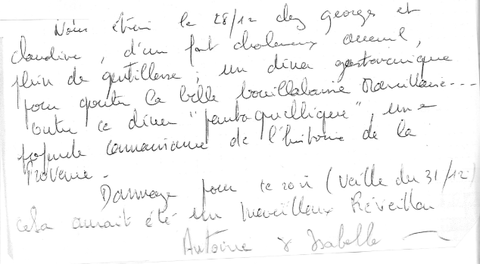 Nous étions le 28/12 chez georges et
claudine, d'un fort chaleureux accueil,
plein de gentillesse, un diner gastronomique
pour gouter la belle bouillabaisse Marseillaise...
outre ce diner "pantagruellique", une
profonde connaissance de l'histoire de la
Provence.
Dommage pour ce soir (veille du 31/12)
cela aurait été un merveilleux Réveillon
Antoine & Isabelle